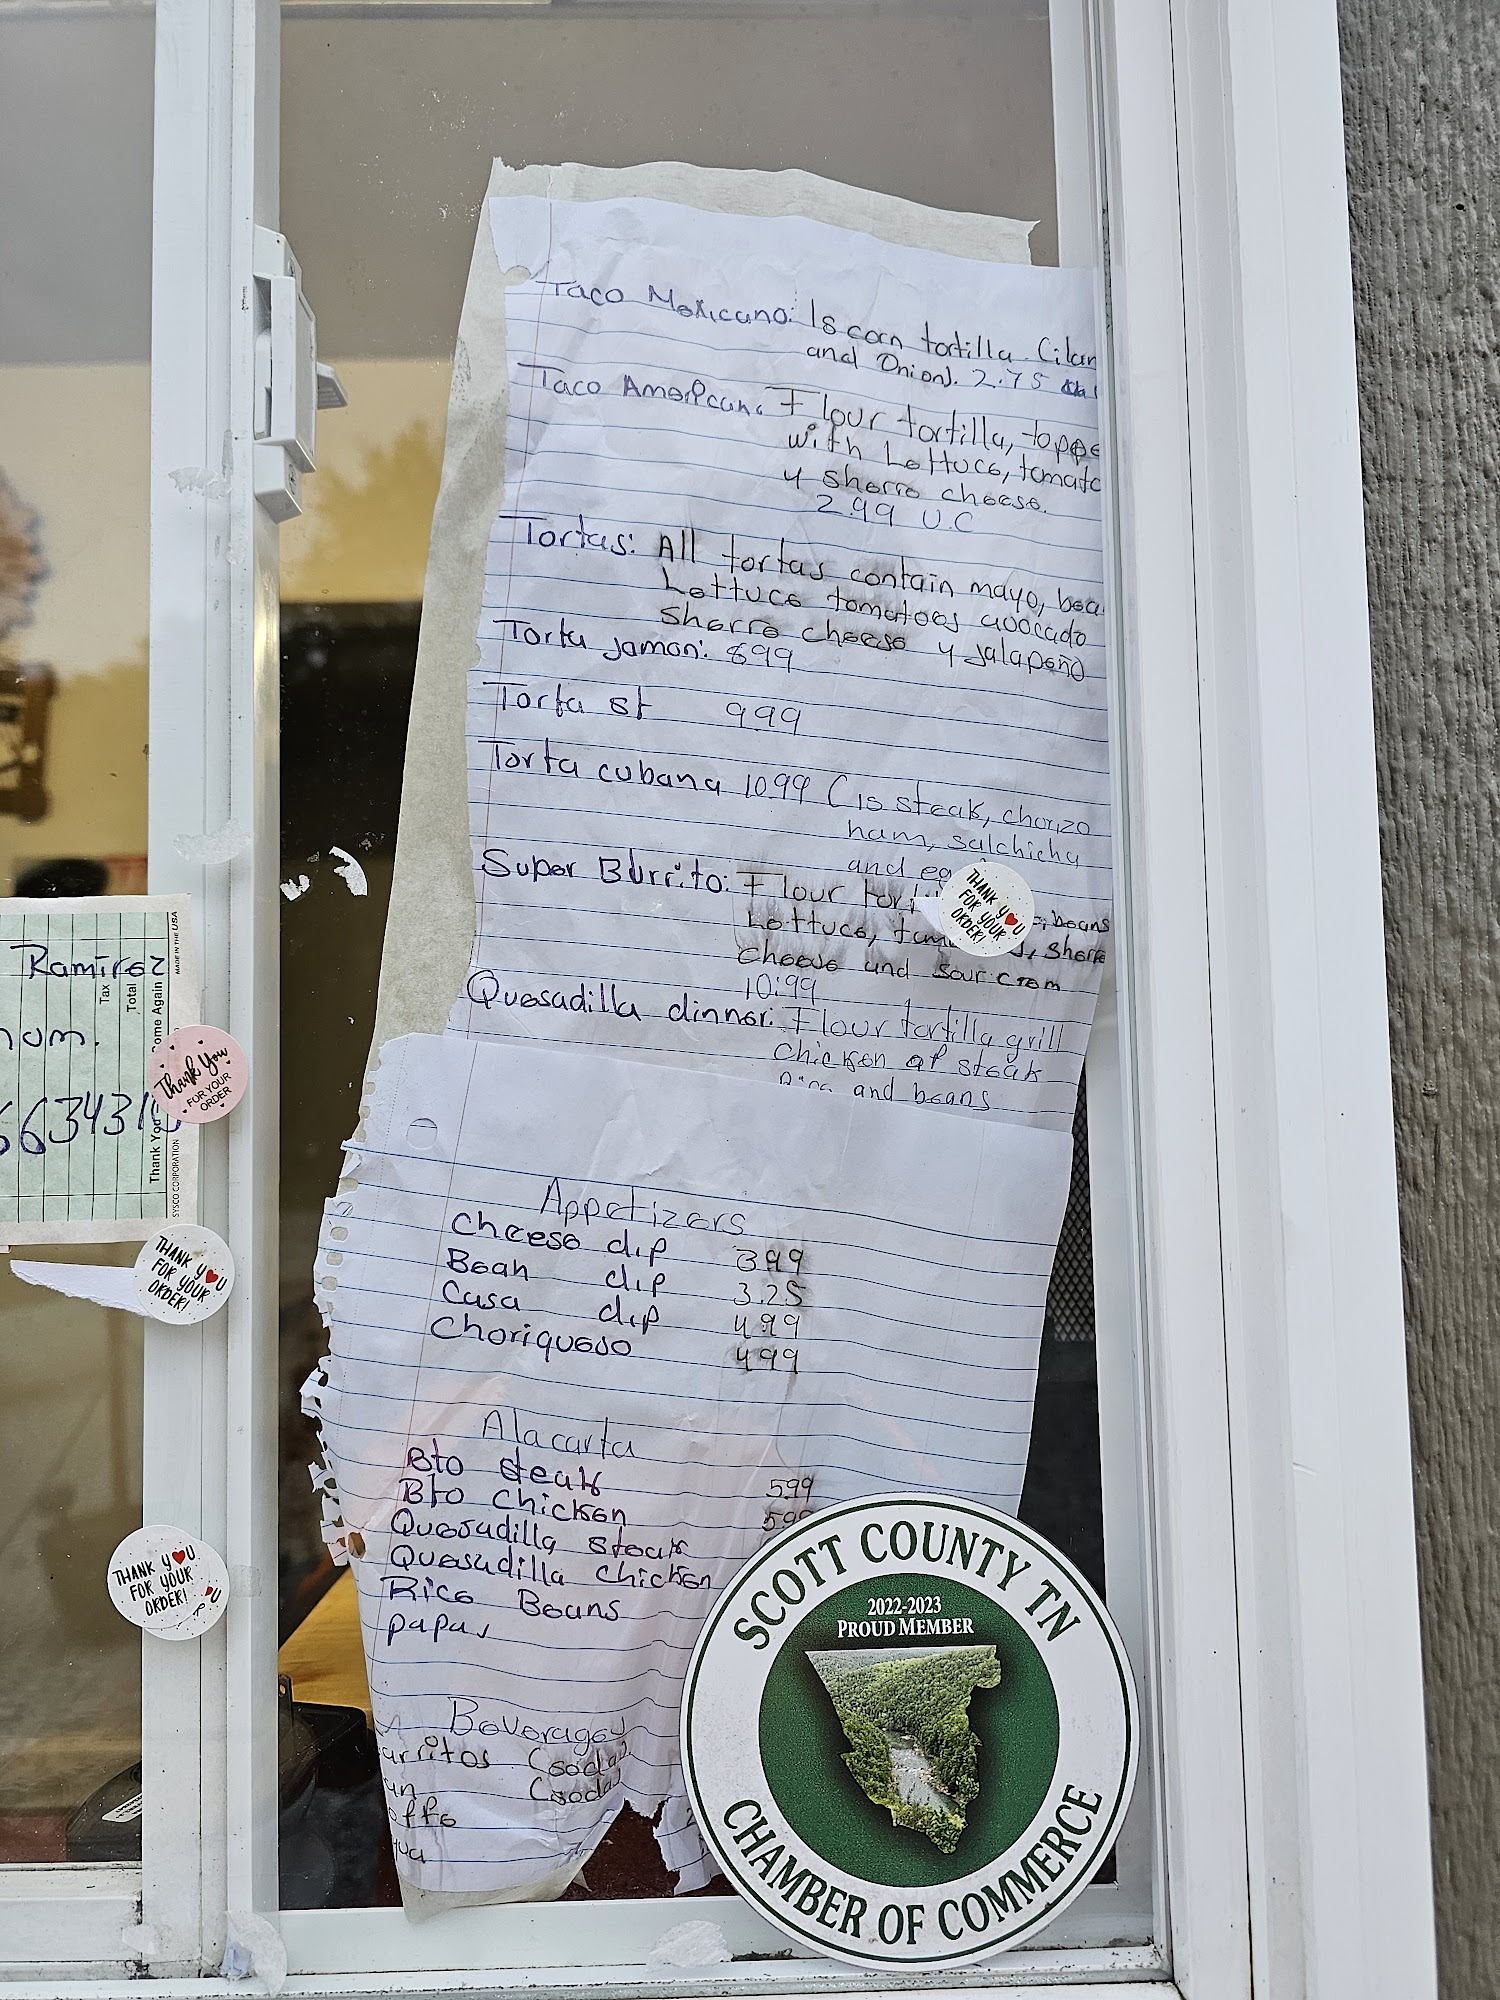 Taco Mexicano: Is corn tortilla. Cilan
and Onion). 2.75
Taco American. Flour tortilla, toppe
with Lettuce, tomato
y sherre cheese.
2.99 U.C
Tortas: All tortas contain mayo, bea
Lettuce tomatoes avocado
Sherre cheese y jalapeño
Torta jamon: 899
Torta st 999
Torta cubana 1099 (is steak, chorizo
ham, salchicha
and eg
Super Burrito: Flour tort beans
Lettuce, tom Sherre
Cheese and sour crem
10.99
Quesadilla dinner: Flour tortilla grill
chicken of steak
Rice and beans
Appetizers
Cheese dip 399
Bean dip 3.25
Casa dip 499
Choriqueso 499
Alacarta
Bto steak 599
Bto chicken 599
Quesadilla steak
Quesadilla chicken
Rice Beans
papas
Beverages
arritos (soda)
an (soda)
offe
gua
THANK YOU
FOR YOUR
ORDER!
Ramirez
Tax
Total
MADE IN THE USA
ome Again
Thank You
SYSCO CORPORATION
nom.
6634316
Thank You
FOR YOUR
ORDER
THANK YOU
FOR YOUR
ORDER!
THANK YOU
FOR YOUR
ORDER!
SCOTT COUNTY TN
2022-2023
PROUD MEMBER
CHAMBER OF COMMERCE